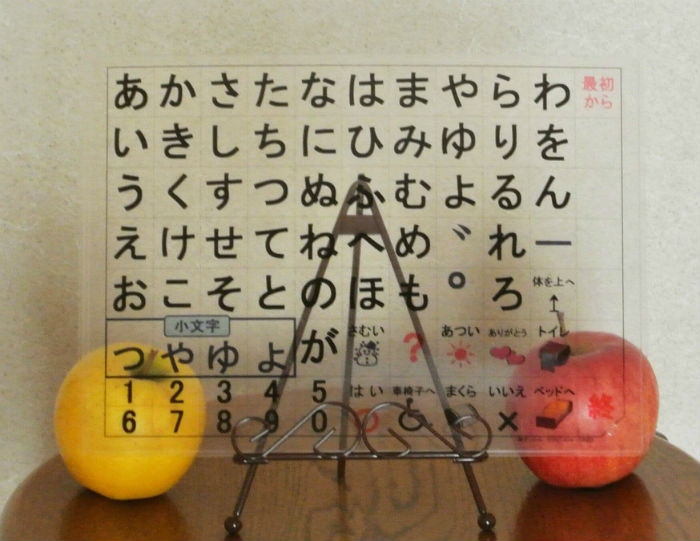 あかさたなはまやらわ 最初から
いきしちにひみゆりを
うくすつぬふむよるん
えけせてねへめ゛れー
おこそとのほも゜ろ 体を上へ
小文字
つやゆよ が さむい ? あつい ありがとう トイレ
1 2 3 4 5 はい 車椅子へ まくら いいえ ベッドへ 終
6 7 8 9 0 ×